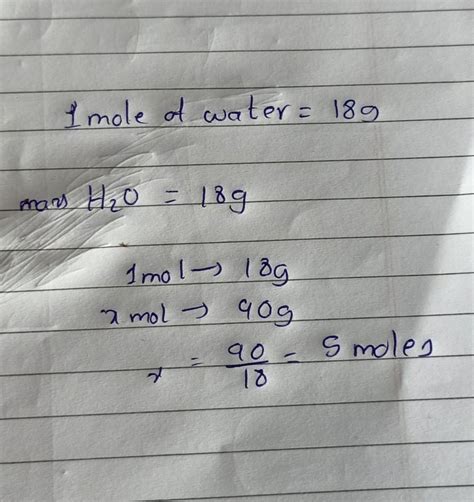 1 mole of water = 18g
mass H₂O = 18g
1mol → 18g
x mol → 90g
x = 90/18 = 5 moles